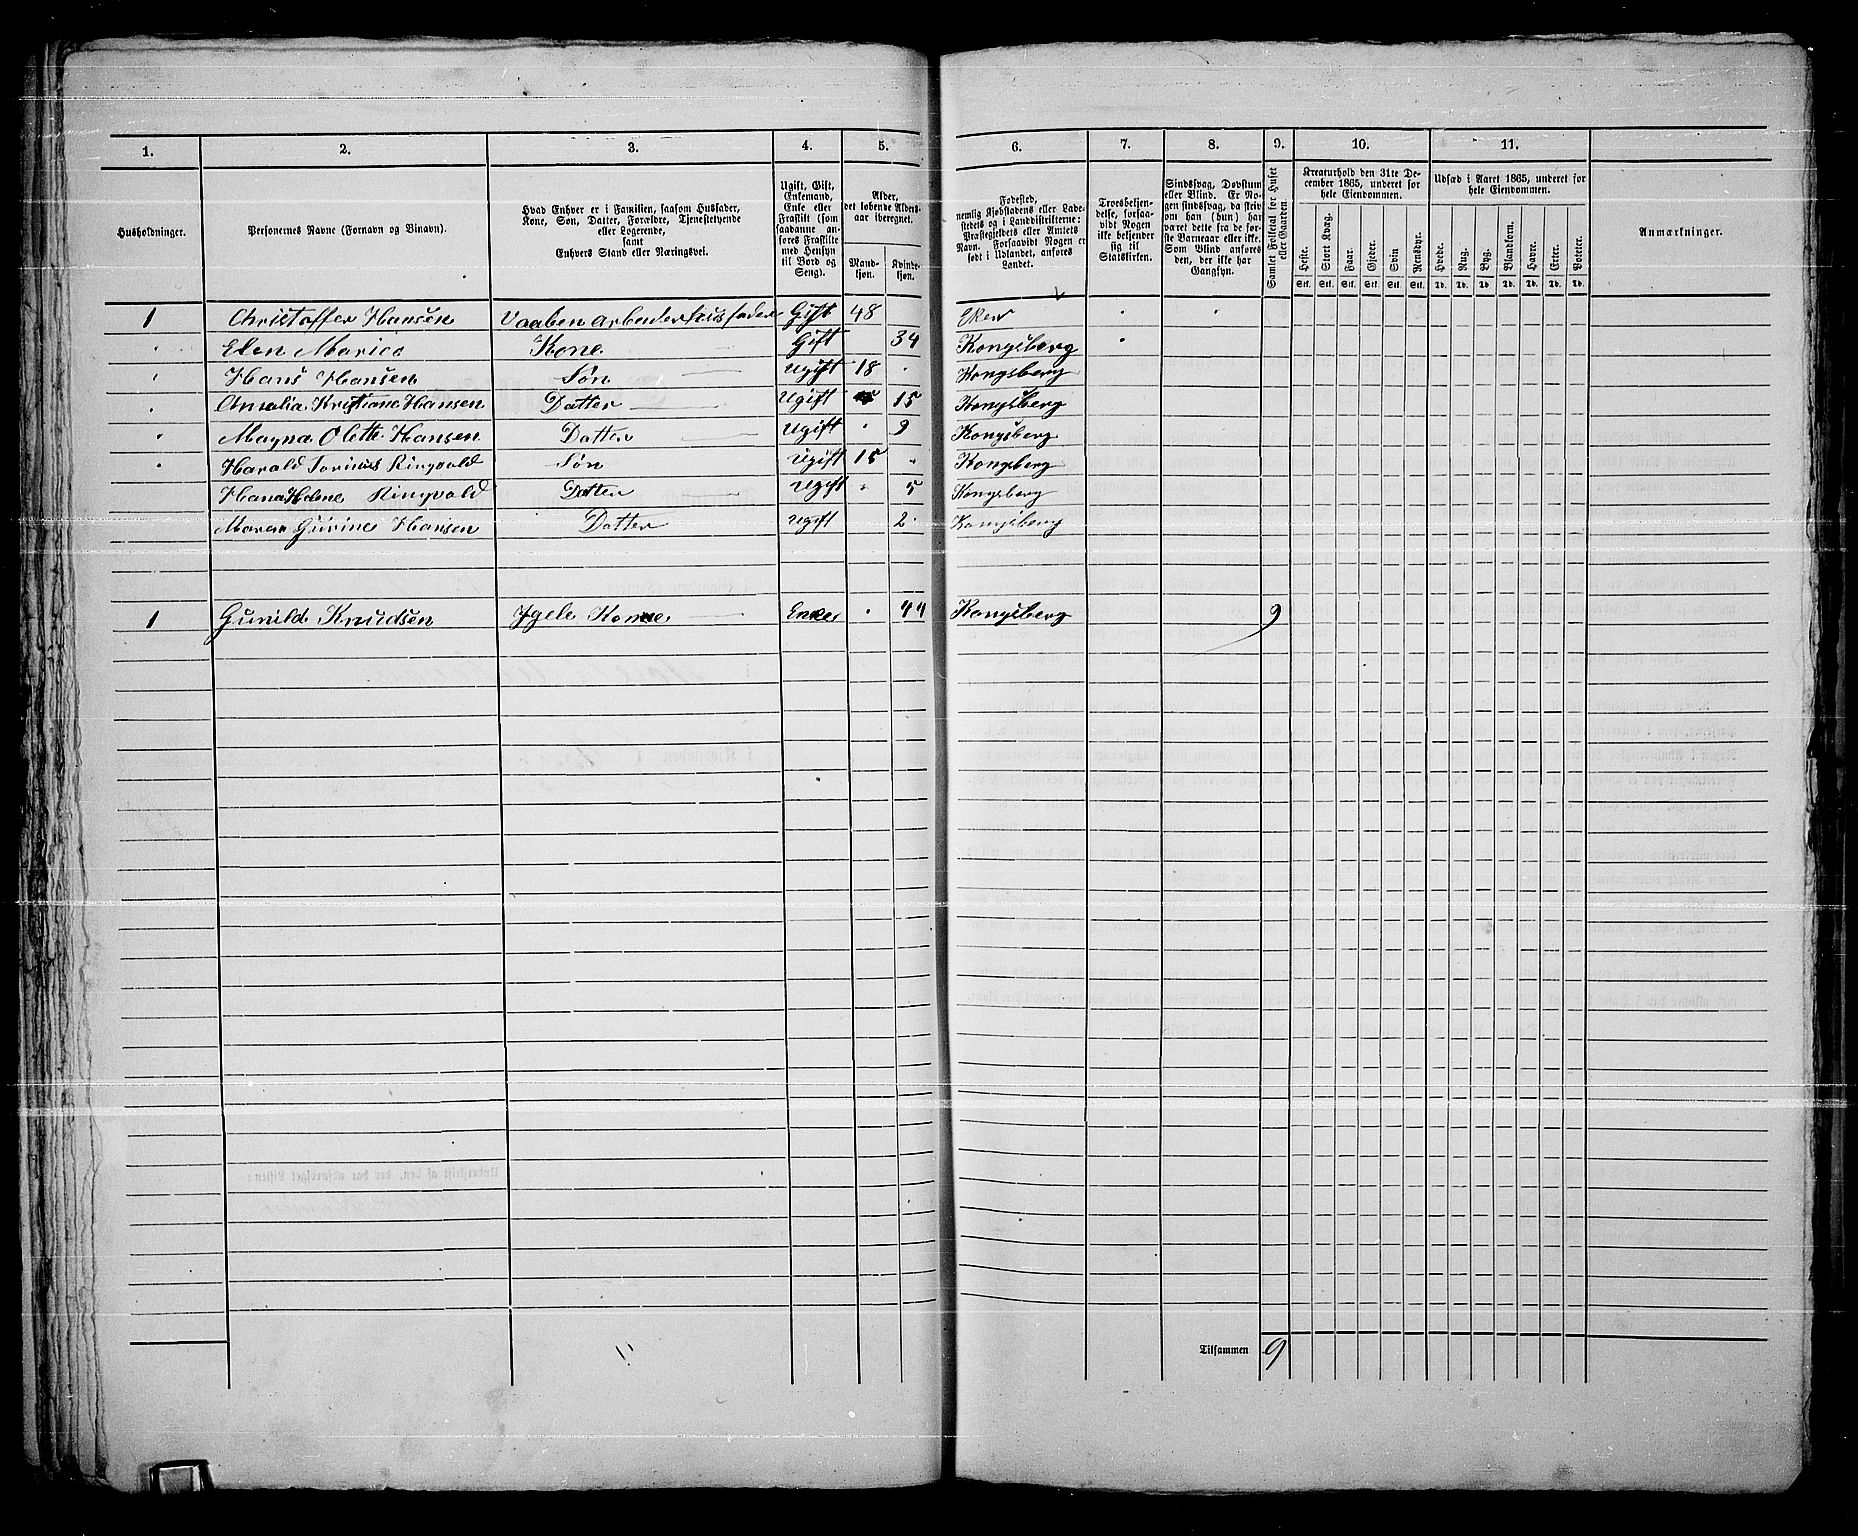 1. 2. 3. 4. 5. 6. 7. 8. 9. 10. 11.
Husholdninger.
Personernes Navne (Fornavn og Binavn).
Hvad Enhver er i Familien, saasom Husfader,
Kone, Søn, Datter, Forældre, Tjenestetyende
eller Logerende,
samt
Enhvers Stand eller Næringsvei.
Ugift, Gift,
Enkemand,
Enke eller
Fraskilt (som
saadanne an-
føres Fraskilte
med Hensyn
til Bord og
Seng).
Alder,
det løbende Alders-
aar iberegnet.
Mand-
kjøn.
Kvinde-
kjøn.
Fødested,
nemlig Kjøbstadens eller Lade-
stedets og i Landdistrikterne:
Præstegjeldets eller Amtets
Navn. Forsaavidt Nogen er
født i Udlandet, anføres
Landet.
Troesbekjen-
delse, forsaa-
vidt Nogen
ikke bekjender
sig til
Statskirken.
Sindssvag, Døvstum
eller Blind. Er No-
gen sindssvag, da skriv
om han (hun) har
været dette fra de før-
ste Barneaar eller ikke.
Som Blind anføres
den, der ikke har
Gangsyn.
Samlet Folketal for Huset
eller Gaarden.
Kreaturhold den 31te De-
cember 1865, underet for
hele Eiendommen.
Heste. Stort Kvæg. Faar. Gjeder. Svin Rensdyr.
Stk. Stk. Stk. Stk. Stk. Stk.
Udsæd i Aaret 1865, underet for
hele Eiendommen.
Hvede. Rug. Byg. Blandkorn. Havre. Erter. Poteter.
Td. Td. Td. Td. Td. Td. Td.
Anmærkninger.
1 Christoffer Hansen Vaaben arbeider husfader Gift 48 Eker
Elen Marie Kone Gift 34 Kongsberg
Hans Hansen Søn Ugift 18 Kongsberg
Amalia Kristiane Hansen Datter Ugift 15 Kongsberg
Magna Olette Hansen Datter Ugift 9 Kongsberg
Harald Ringvold Søn Ugift 15 Kongsberg
Hana Helene Ringvold Datter Ugift 5 Kongsberg
Maren Gurine Hansen Datter Ugift 2 Kongsberg
1 Gunild Knudsen Kone Enke 44 Kongsberg 9
Tilsammen 9